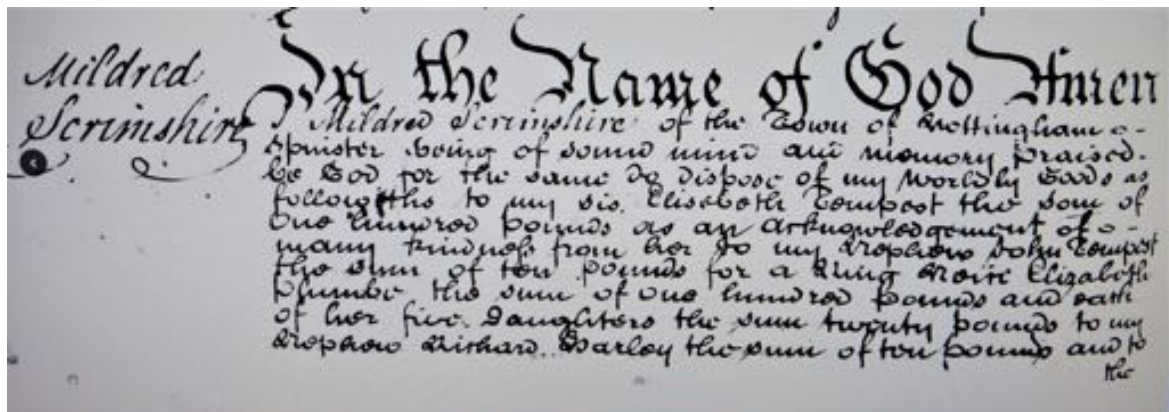 Mildred
Scrimshire
In the Name of God Amen
I Mildred Scrimshire of the Town of Nottingham
Spinster being of sound mind and memory praised
be God for the same do dispose of my worldly Goods as
followeths to my sis. Elisebeth Tempest the som of
One hundred pounds as an acknowledgement of
many kindness from her to my Nephew John Tempest
the sum of ten pounds for a Ring Neice Elizabeth
Plumbe the sum of one hundred pounds and each
of her five Daughters the sum twenty pounds to my
Nephew Richard Darley the sum of ten pounds and to
the